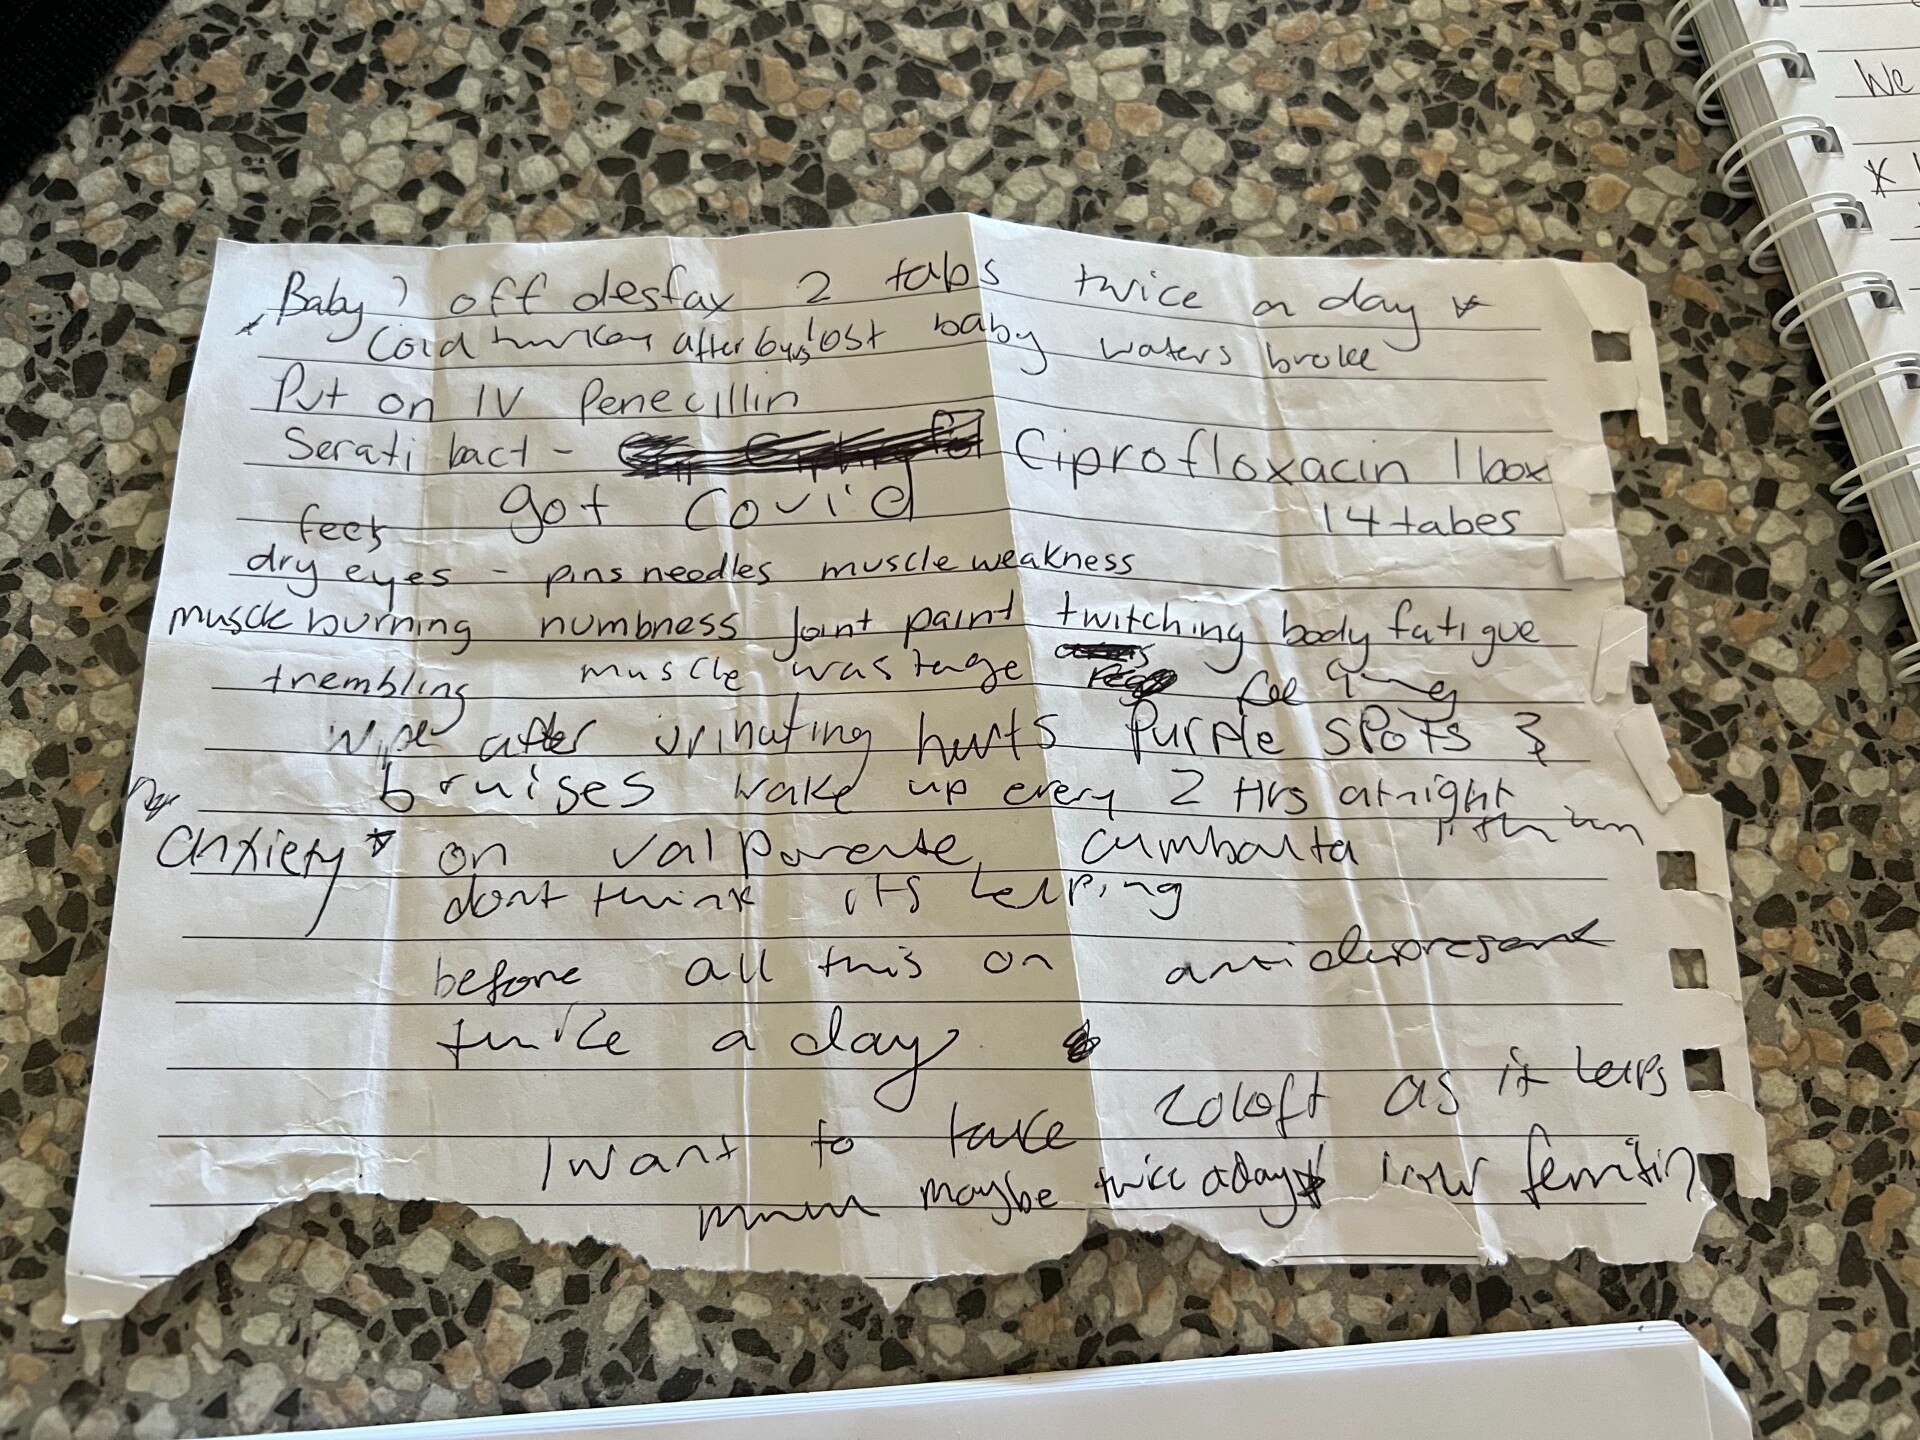 Baby? off desfax 2 tabs twice a day *
* Cold turkey after 6yrs lost baby waters broke
Put on IV Penecillin
Serati bact - Ciprofloxacin 1 box
got Covid 14 tabes
feet
dry eyes - pins needles muscle weakness
muscle burning numbness joint paint twitching body fatigue
trembling muscle wastage
wipe after urinating hurts Purple SPOTS &
bruises wake up every 2 Hrs at night
anxiety * on valporate, cumbalta lithium
dont think its helping
before all this on antidepresant
twice a day
I want to take zoloft as it helps
maybe twice a day * low ferritin
We
*